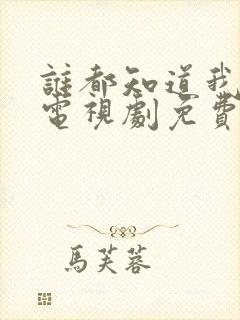 誰都知道我
電視劇免費
馬芙蓉